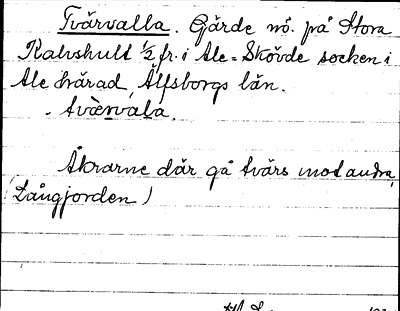 Tvärvalla. Gärde nö. på Stora
Kalvshult ½ fr. i Ale-Skövde socken i
Ale härad, Älfsborgs län.
- tvärvala.
Åkrarne där gå tvärs mot andra
(Långjorden)